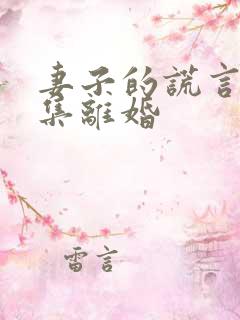 妻子的謊言
集離婚
雷言